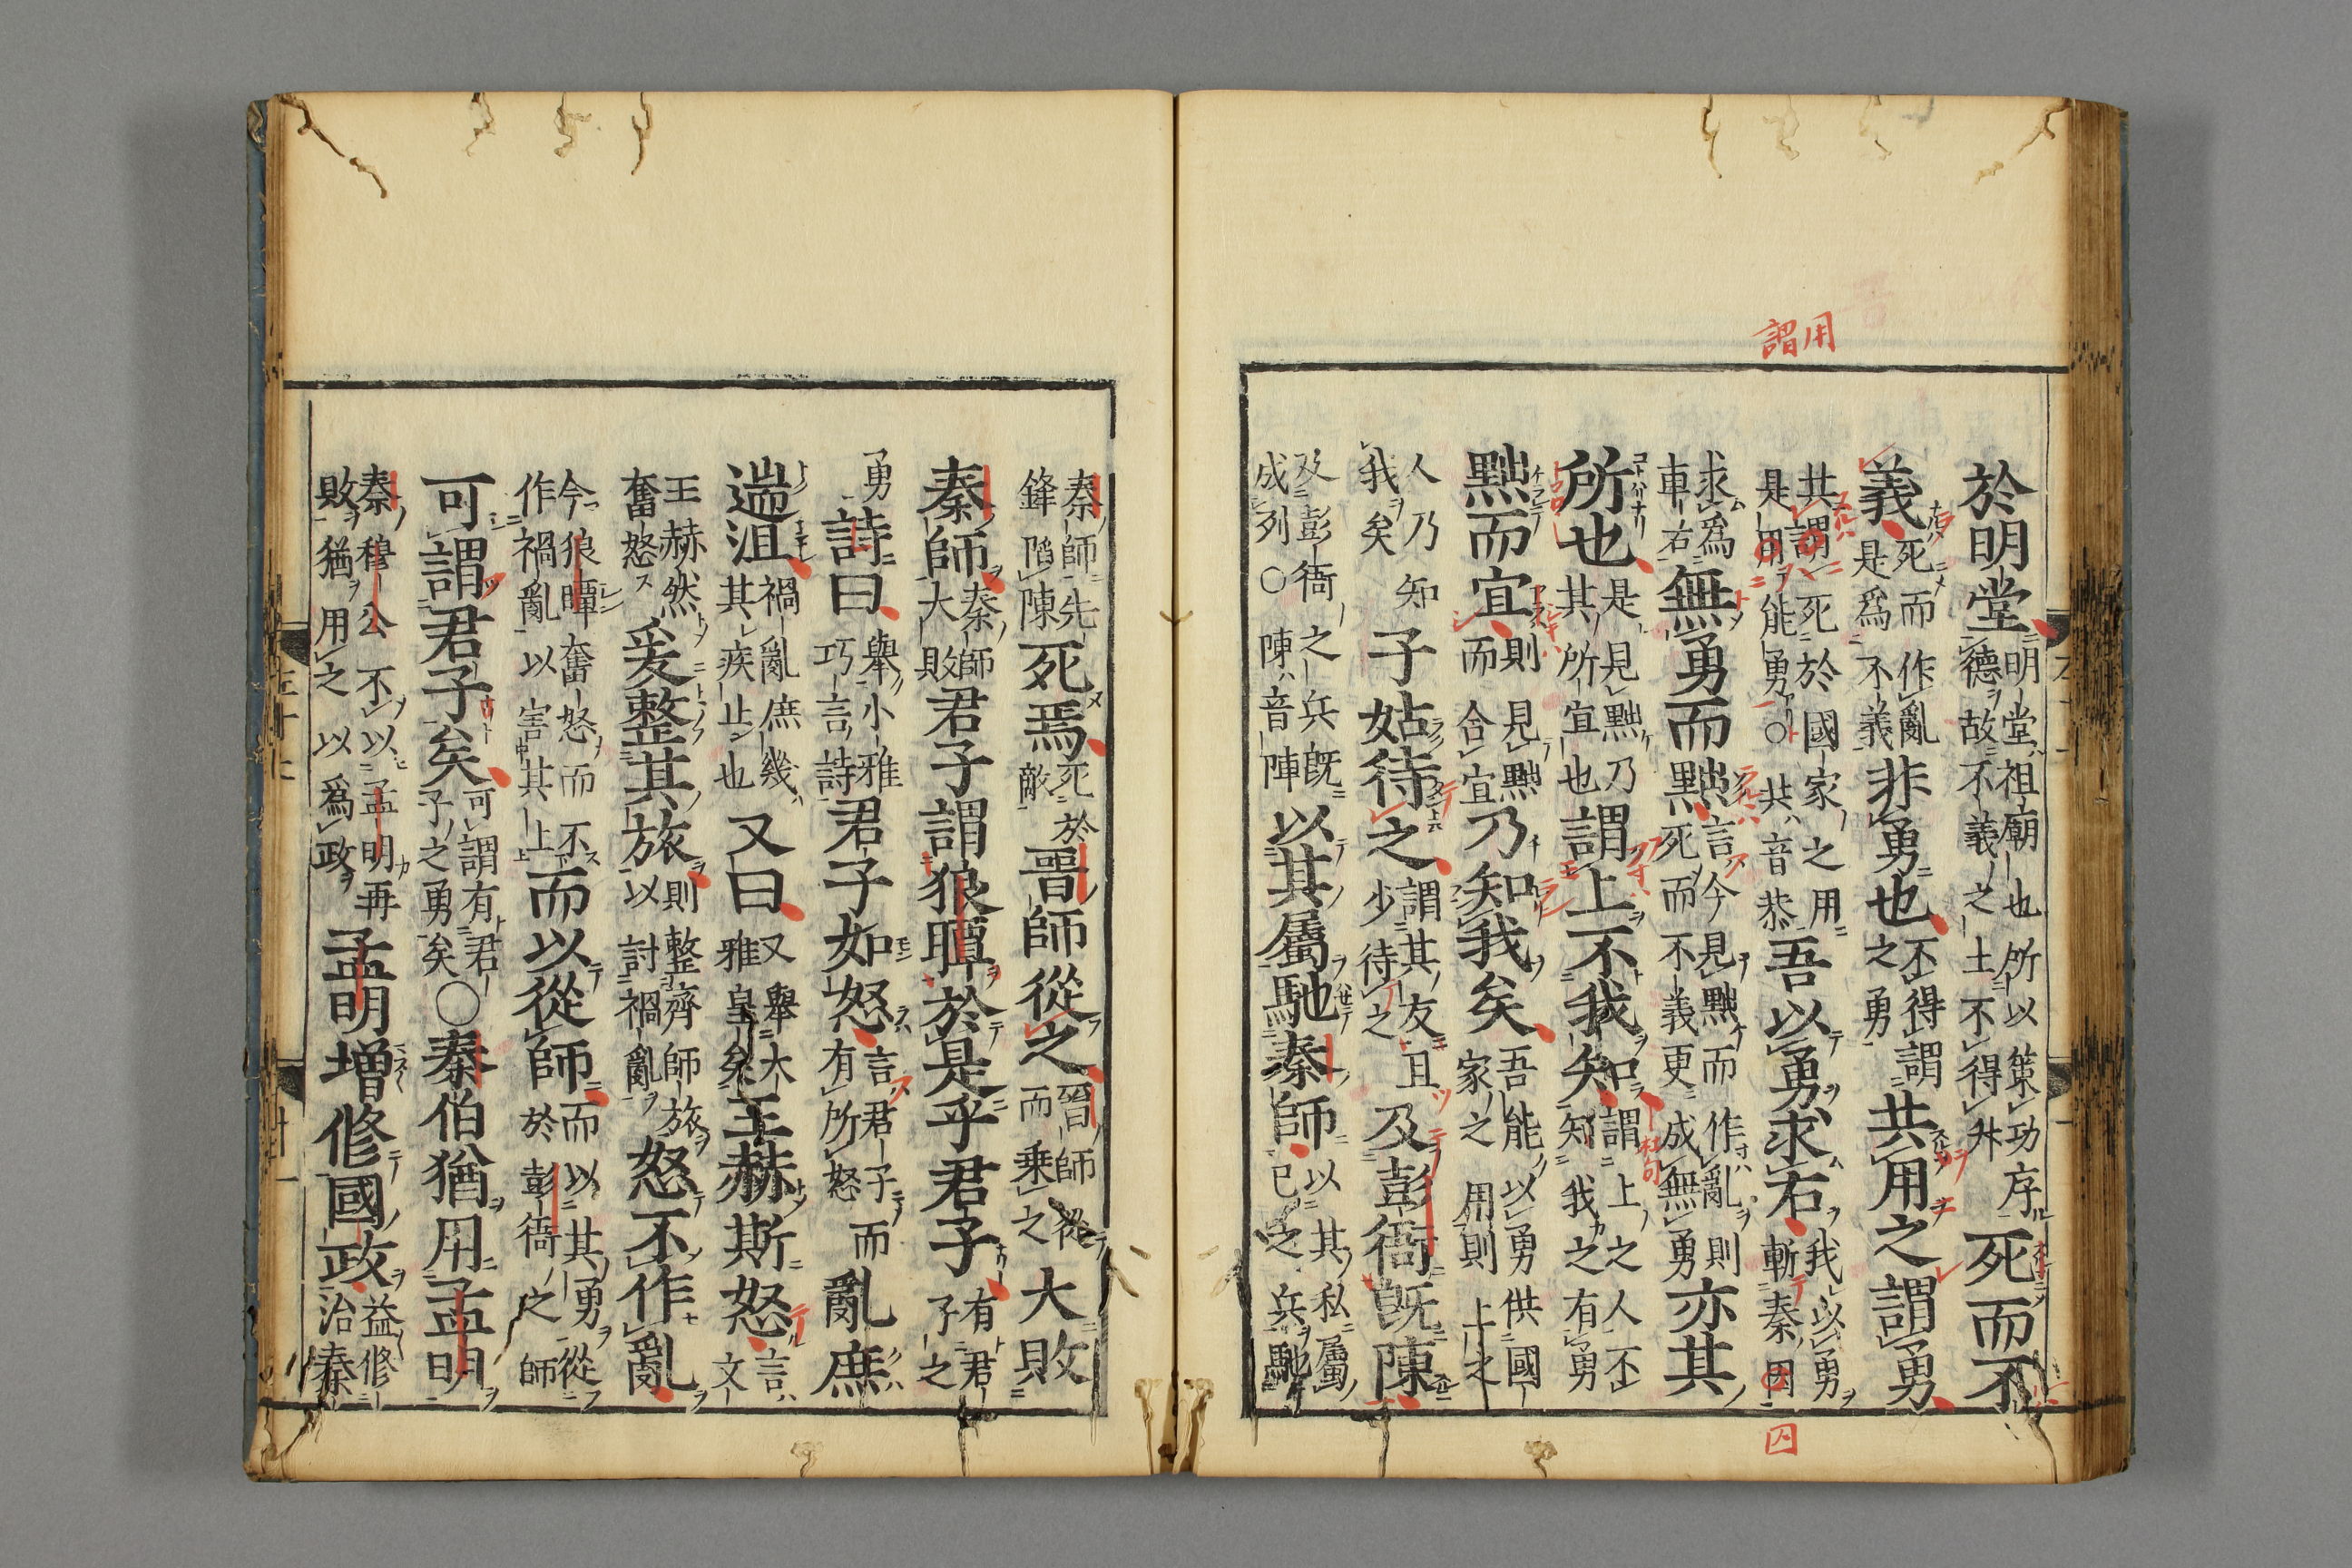 用謂
於明堂明堂祖廟也所以策功序德故不義之士不得升死而不
義死而作亂是爲不義非勇也不得謂之勇共用之謂勇
共謂死於國家之用是用能勇○共音恭吾以勇求右我以勇斬秦因
囚
求爲車右無勇而黜言今見黜而作亂則死而不義更成無勇亦其
所也是見黜乃其所宜也謂上不我知謂上之人不知我之有勇
黜而宜則見黜而合宜乃知我矣吾能以勇供國家之用則上之
人乃知我矣子姑待之謂其友且少待之及彭衙既陳
及彭衙之兵既成列○陳音陣以其屬馳秦師以其私屬已之兵馳
秦師先鋒陷陳死焉死於敵晉師從之晉師從而乘之大敗
秦師秦師大敗君子謂狼瞫於是乎君子有君子之
勇詩曰舉小雅巧言詩君子如怒言君子而有所怒亂庶
遄沮禍亂庶幾其疾止也又曰又舉大雅皇矣王赫斯怒言文
王赫然奮怒爰整其旅則整齊師旅以討禍亂怒不作亂
今狼瞫奮怒而不作禍亂以害其上而以從師而以其勇從於彭衙之師
可謂君子矣可謂有君子之勇矣○秦伯猶用孟明
秦穆公不以孟明再敗猶用之以爲政孟明增修國政益修治秦